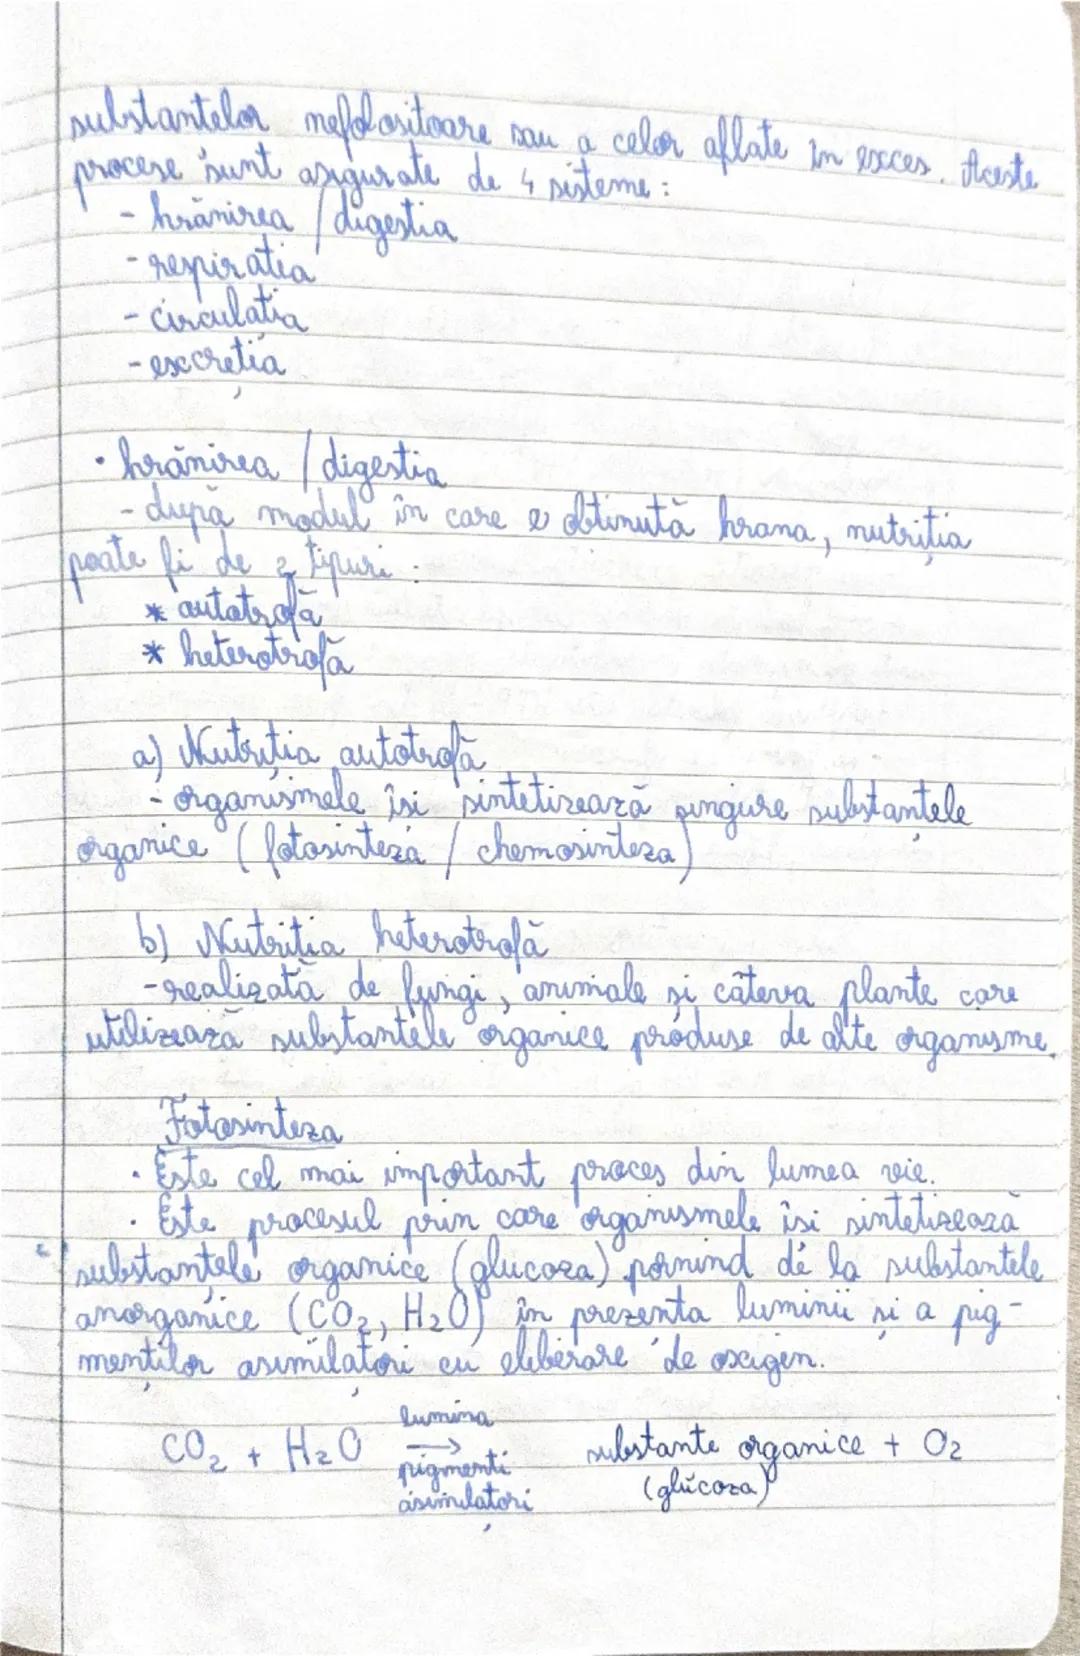 substanțelor nefolositoare sau a celor aflate în exces. Aceste
procese sunt asigurate de 4 sisteme:
- hrănirea / digestia
- respirația
- circulația
- excreția
• hrănirea / digestia
- după modul în care e obținută hrana, nutriția
poate fi de 2 tipuri:
* autotrofă
* heterotrofă
a) Nutriția autotrofă
- organismele își sintetizează singure substanțele
organice (fotosinteza / chemosinteza)
b) Nutriția heterotrofă
- realizată de fungi, animale și câteva plante care
utilizează substanțele organice produse de alte organisme.
Fotosinteza
• Este cel mai important proces din lumea vie.
• Este procesul prin care organismele își sintetizează
substanțele organice (glucoza) pornind de la substanțele
anorganice (CO₂, H₂O) în prezența luminii și a pig-
menților asimilatori cu eliberare de oxigen.
lumina
CO₂ + H₂O → substanțe organice + O₂
pigmenți (glucoza)
asimilatori